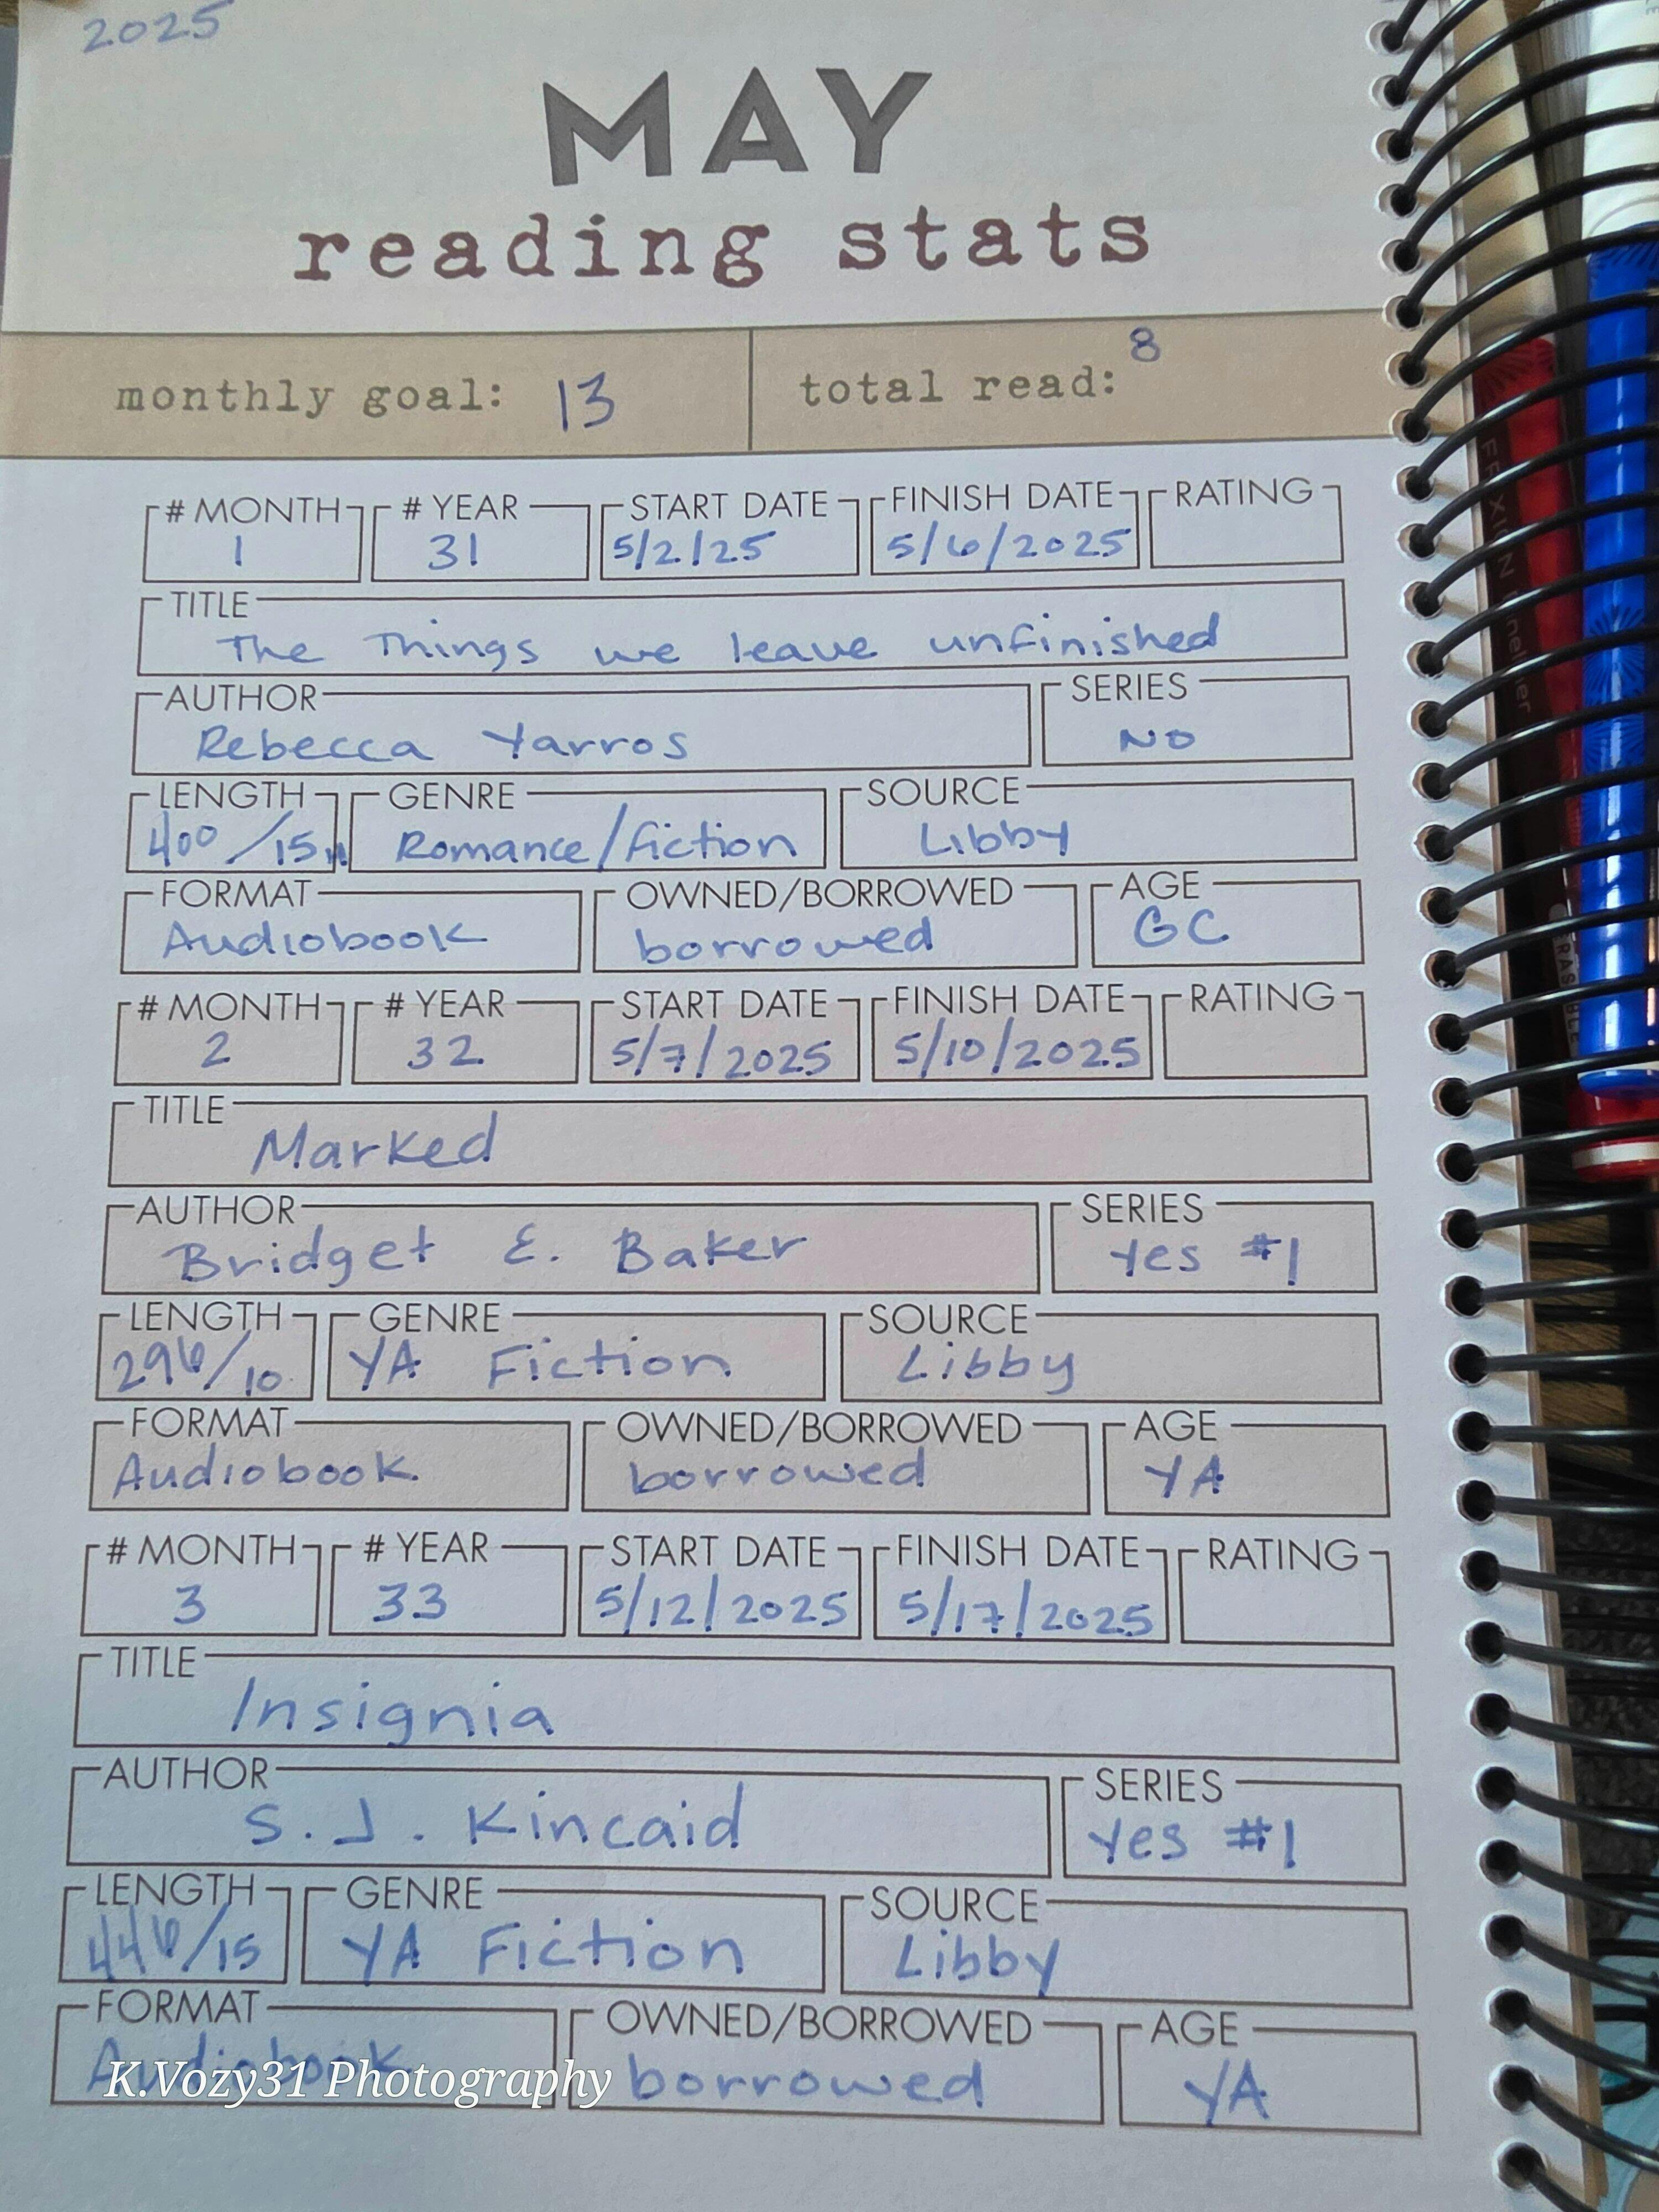 2025
MAY
reading stats
monthly goal: 13 total read: 8
# MONTH # YEAR START DATE FINISH DATE RATING
1 31 5/2/25 5/6/2025
TITLE
The Things we leave unfinished
AUTHOR SERIES
Rebecca Yarros NO
LENGTH GENRE SOURCE
400/15 Romance/fiction Libby
FORMAT OWNED/BORROWED AGE
Audiobook borrowed GC
# MONTH # YEAR START DATE FINISH DATE RATING
2 32 5/7/2025 5/10/2025
TITLE
Marked
AUTHOR SERIES
Bridget E. Baker Yes #1
LENGTH GENRE SOURCE
296/10 YA Fiction Libby
FORMAT OWNED/BORROWED AGE
Audiobook borrowed YA
# MONTH # YEAR START DATE FINISH DATE RATING
3 33 5/12/2025 5/17/2025
TITLE
Insignia
AUTHOR SERIES
S.J. Kincaid Yes #1
LENGTH GENRE SOURCE
446/15 YA Fiction Libby
FORMAT OWNED/BORROWED AGE
Audiobook borrowed YA
K.Vozy31 Photography